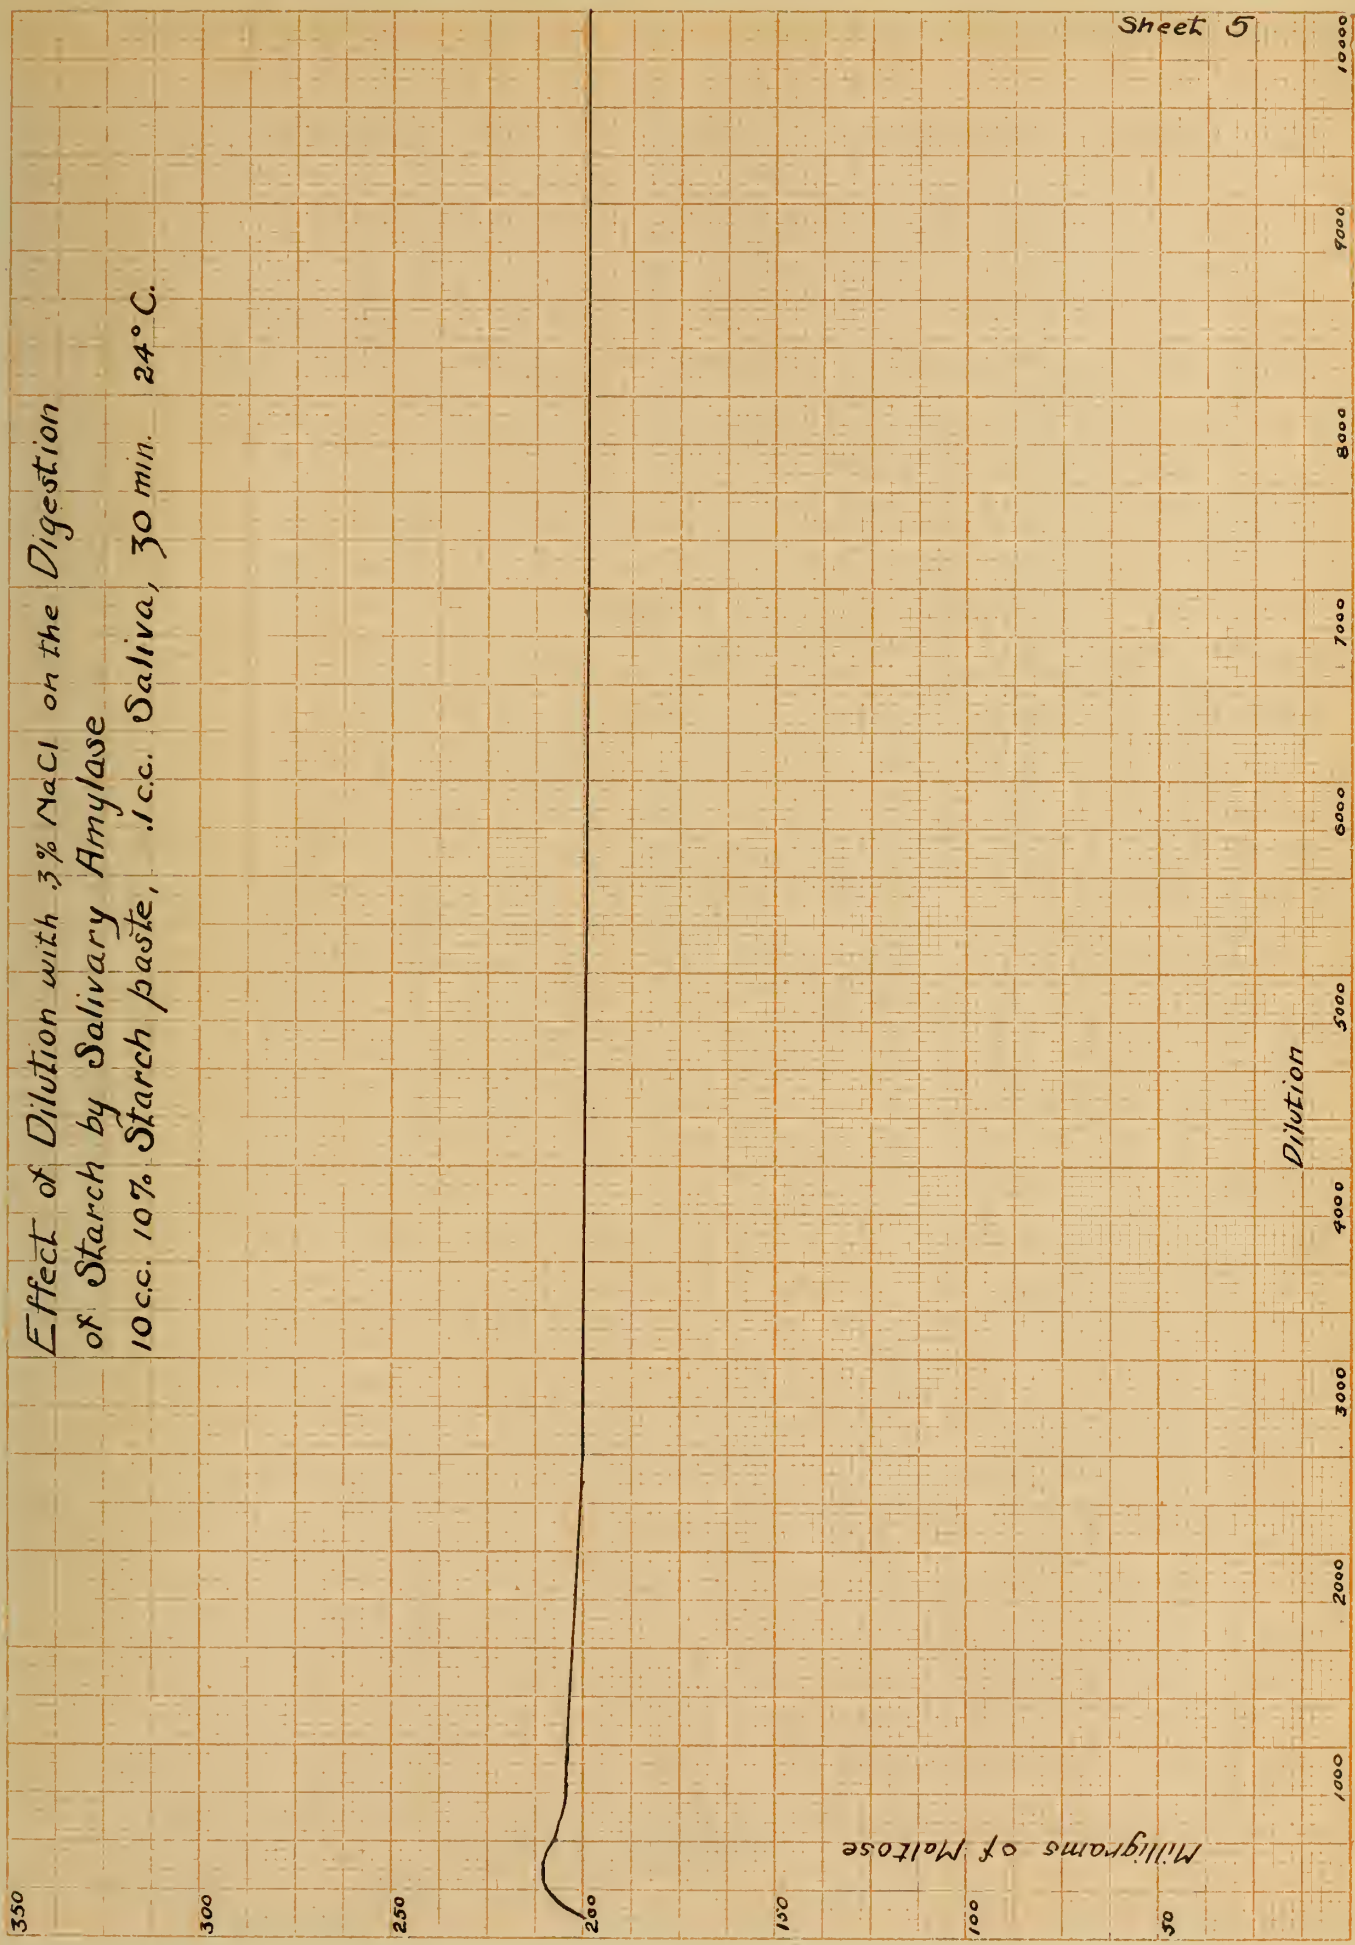 Sheet 5
Effect of Dilution with .3% NaCl on the Digestion
of Starch by Salivary Amylase
10 c.c. 10% Starch paste, .1 c.c. Saliva, 30 min. 24° C.
350
300
250
200
150
100
50
Milligrams of Maltose
1000
2000
3000
4000
5000
6000
7000
8000
9000
10000
Dilution